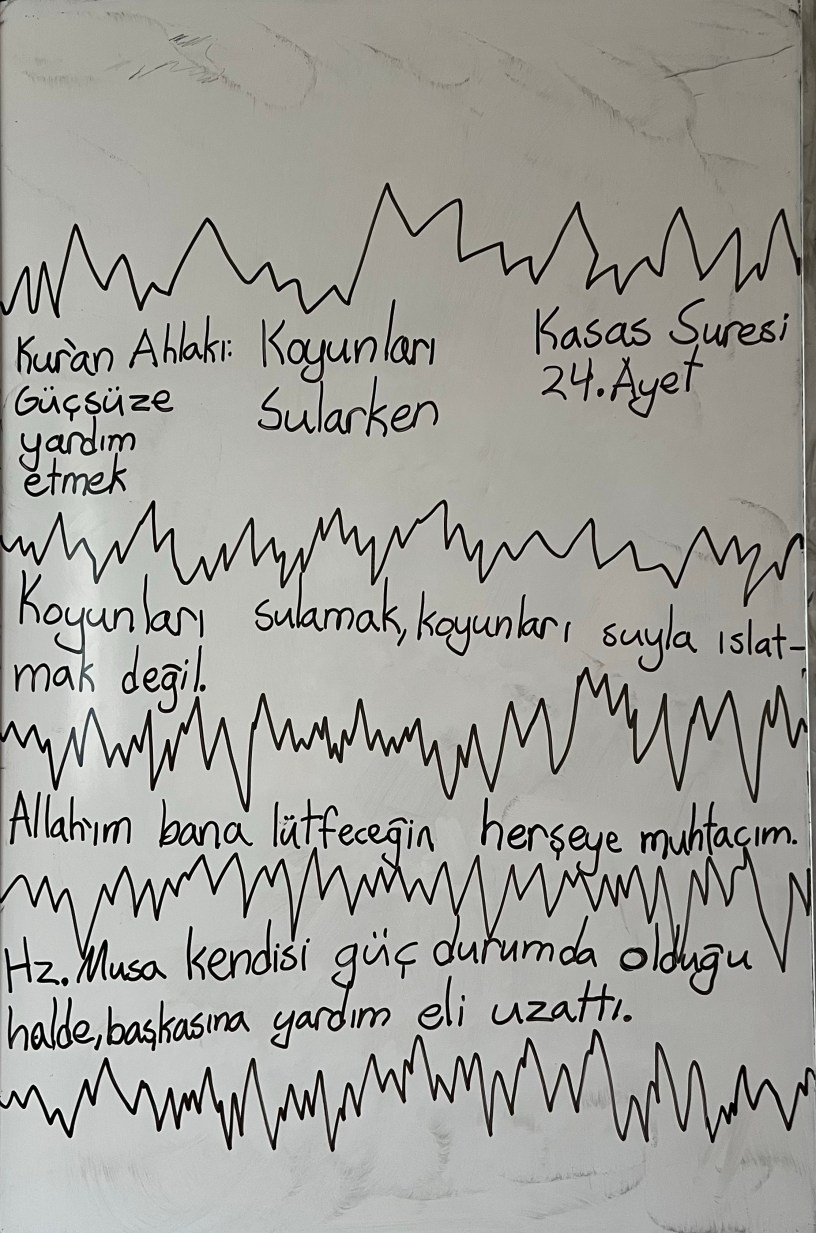 Kur'an Ahlakı:
Güçsüze
yardım
etmek
Koyunları
Sularken
Kasas Suresi
24. Ayet
Koyunları sulamak, koyunları suyla ıslat-
mak değil.
Allah'ım bana lütfeceğin herşeye muhtaçım.
Hz. Musa kendisi güç durumda olduğu
halde, başkasına yardım eli uzattı.